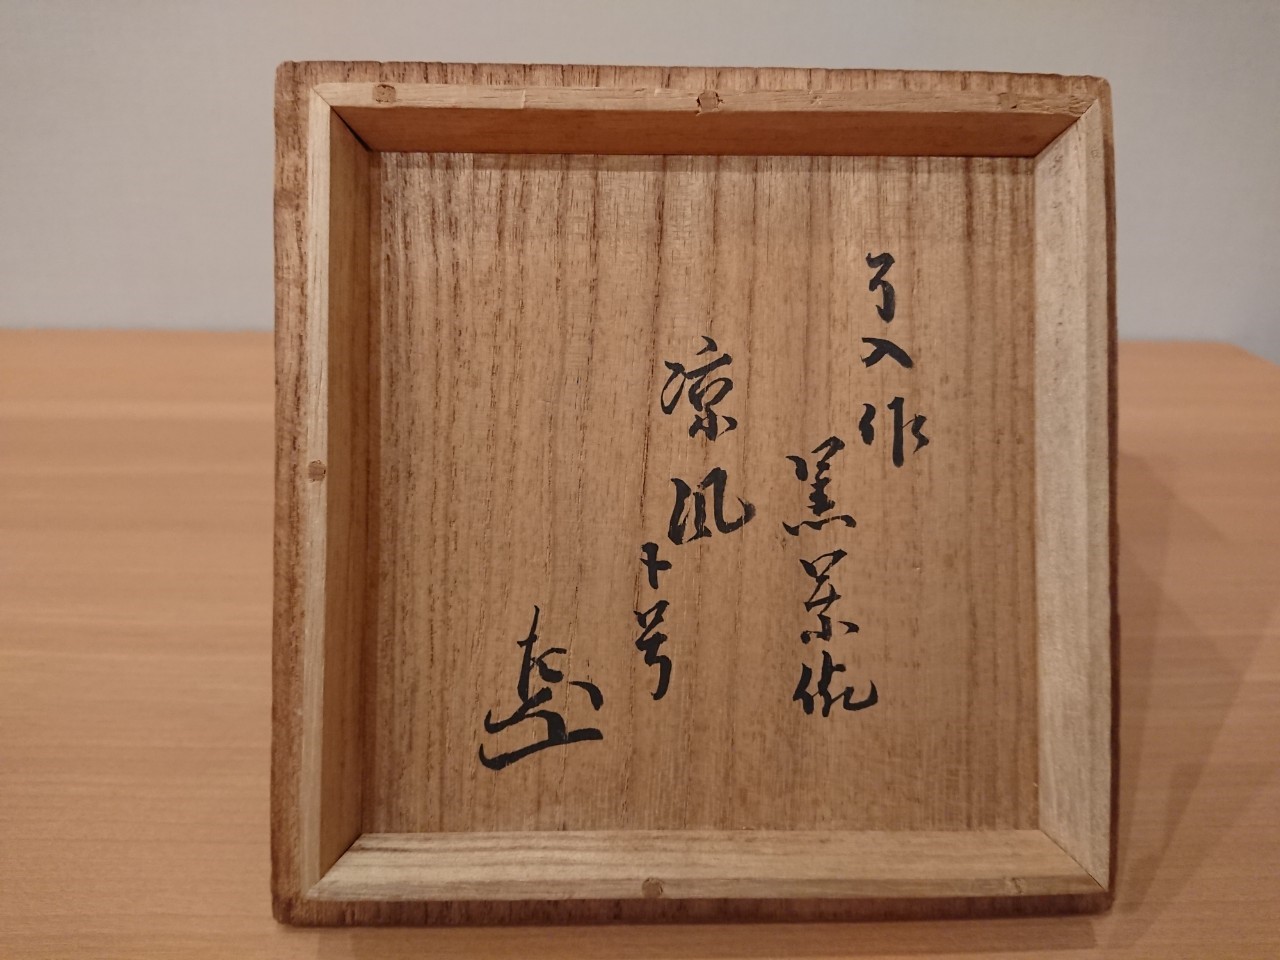 了入作
黒茶碗
凉風ト号